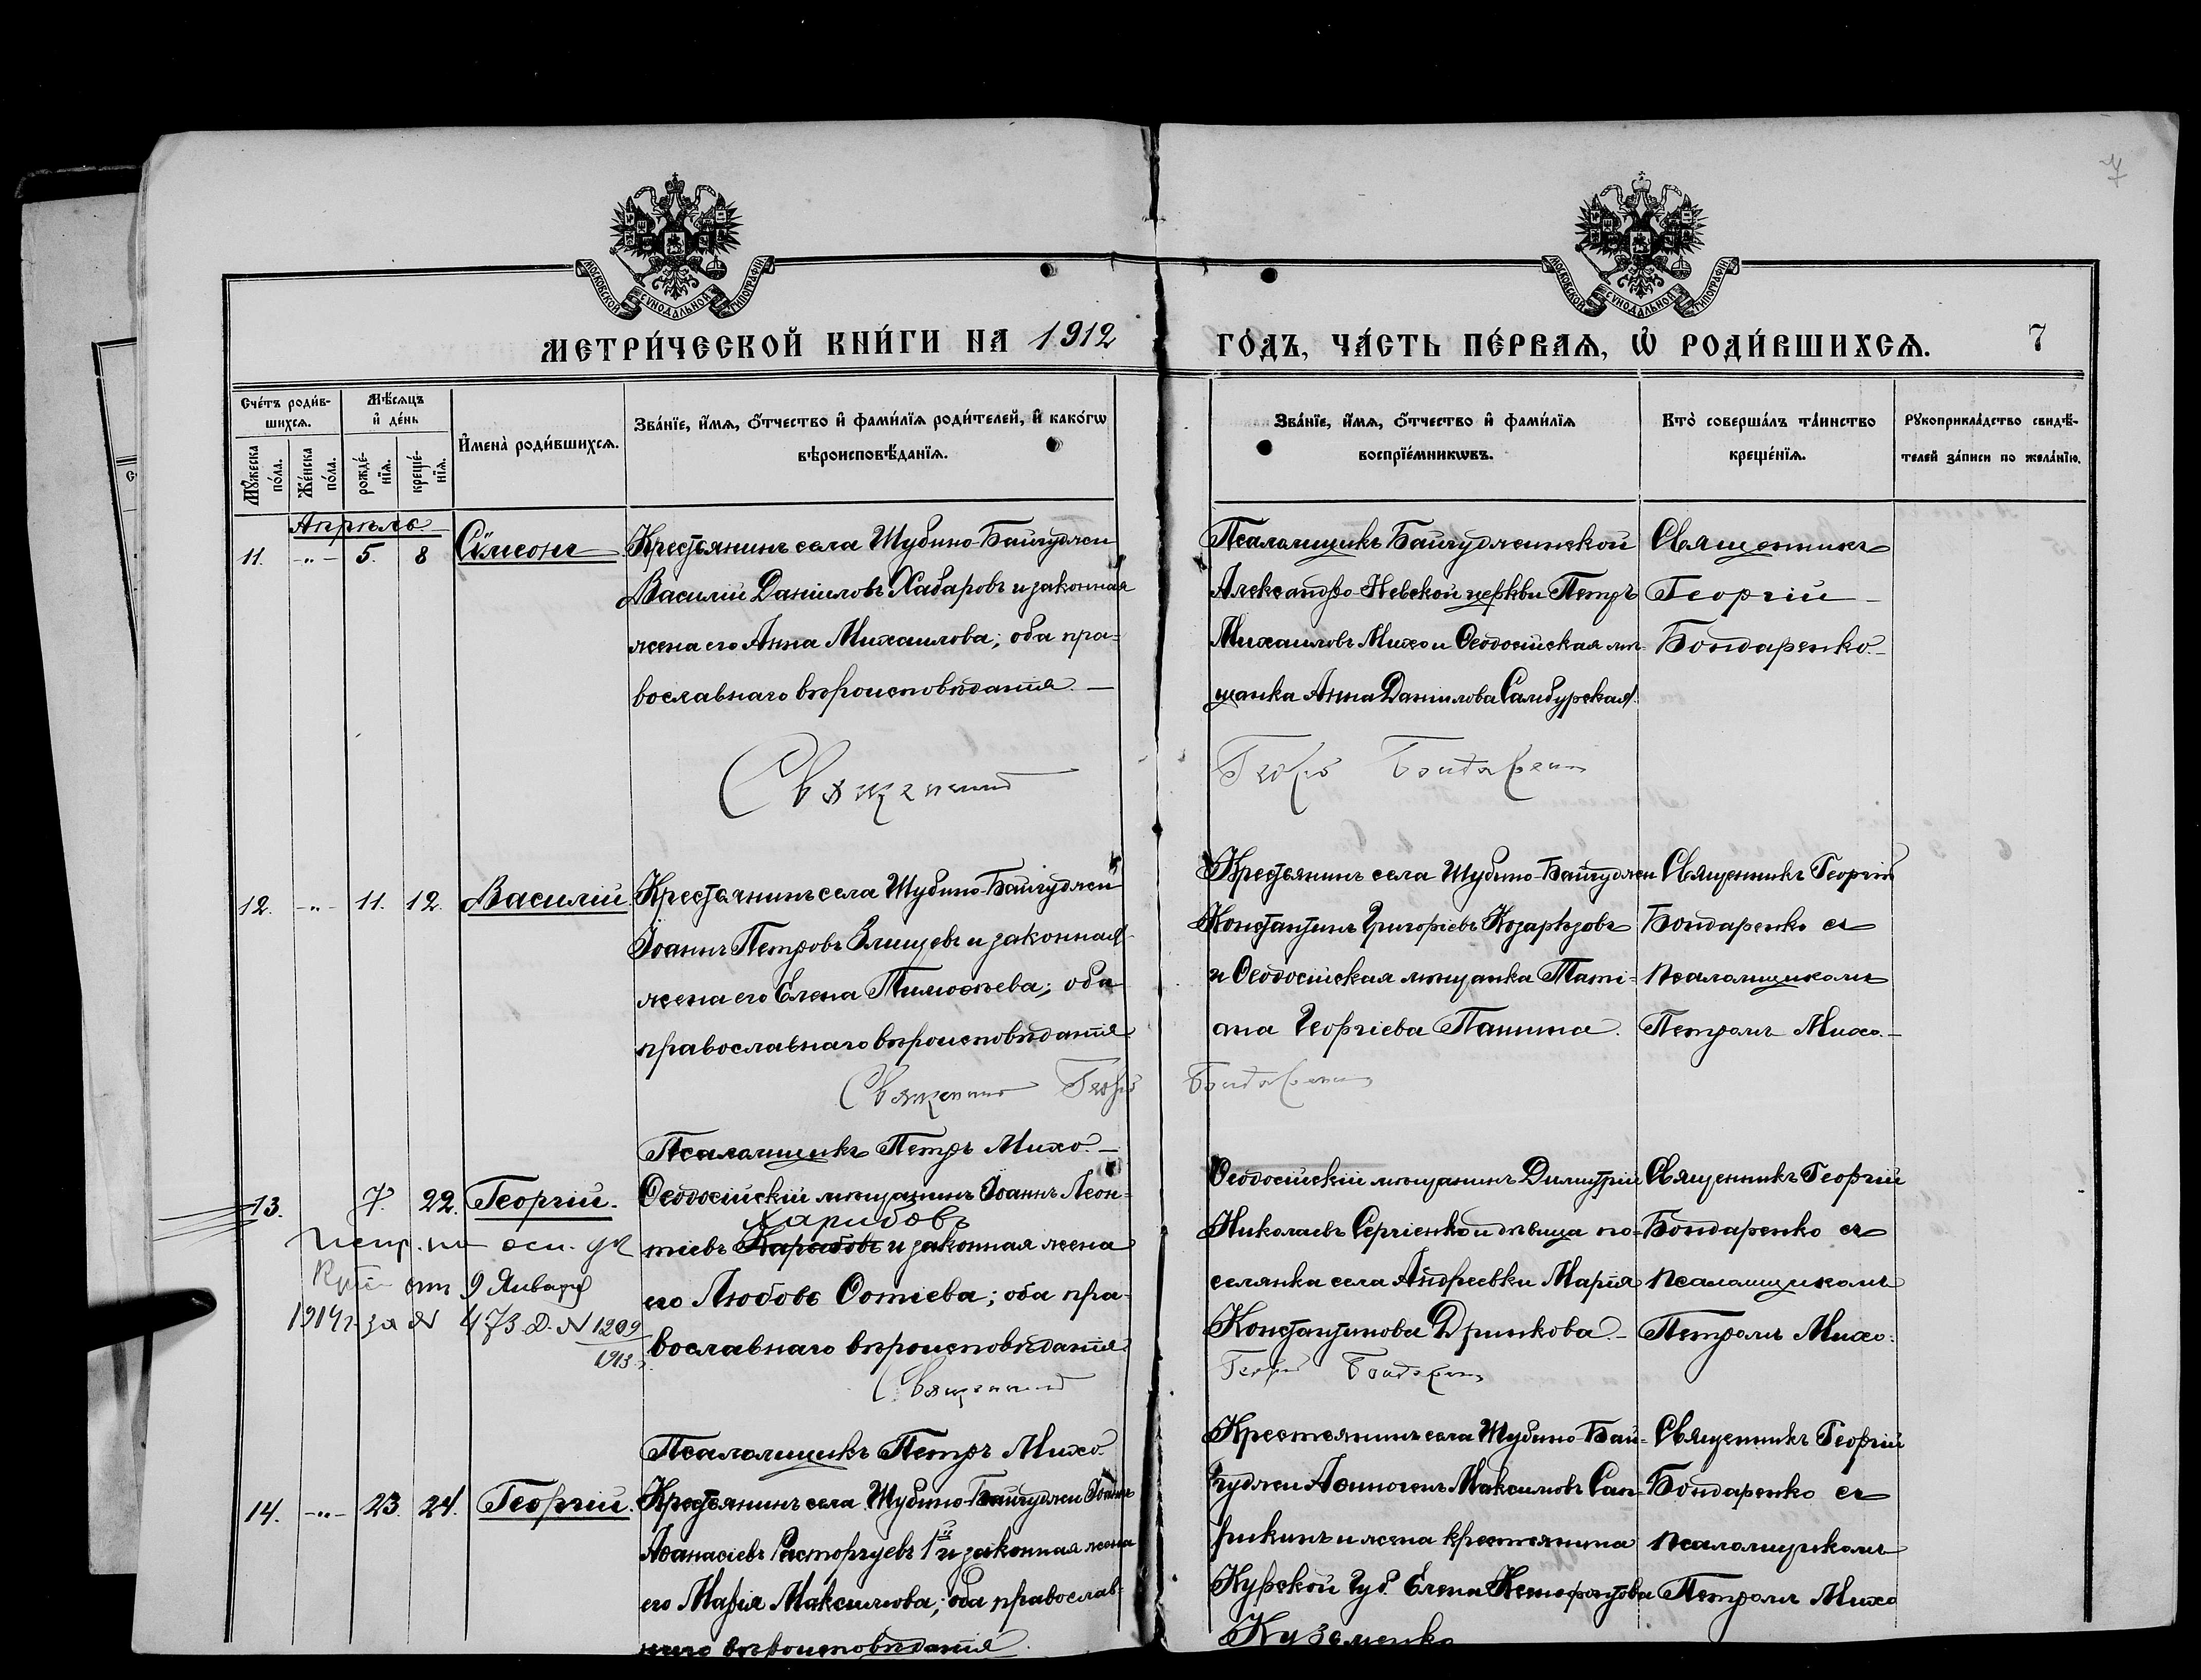 7
МОСКОВСКОЙ СѴНОДАЛЬНОЙ ТИПОГРАФІИ
МОСКОВСКОЙ СѴНОДАЛЬНОЙ ТИПОГРАФІИ
МЕТРИ́ЧЕСКОЙ КНИ́ГИ НА 1912 ГО́ДЪ, ЧА́СТЬ ПЕ́РВАЯ, Ѡ҆ РОДИ́ВШИХСЯ. 7
Сче́тъ роди́в-
шихся.
Му́жеска по́ла.
Же́нска по́ла.
Мѣ́сяцъ и҆ де́нь
рожде́-
нїя.
креще́-
нїя.
И҆мена̀ роди́вшихся.
Зва́нїе, и҆́мя, ѻ҆́тчество и҆ фами́лїя роди́телей, и҆ како́гѡ
вѣроисповѣ́данїя.
Зва́нїе, и҆́мя, ѻ҆́тчество и҆ фами́лїя
воспрїе́мникѡвъ.
Кто̀ соверша́лъ та́инство
креще́нїя.
Рукоприкла́дство свидѣ́-
телей за́писи по жела́нїю.
Апрѣль.
11. -"- 5. 8 Сѵмеонъ
Крестьянинъ села Шубино-Байгуджи
Василій Даніиловъ Хабаровъ и законная
жена его Анна Михаилова; оба пра-
вославнаго вѣроисповѣданія. —
Псаломщикъ Байгуджинской
Александро-Невской церкви Петръ
Михаиловъ Михо и Ѳеодосійская мѣ-
щанка Анна Даніилова Самбурская
Священникъ
Георгій
Бондаренко.
Священникъ Георгій Бондаренко
12. -"- 11. 12. Василій
Крестьянинъ села Шубино-Байгуджи
Іоаннъ Петровъ Улищевъ и законная
жена его Елена Тимоѳеева; оба
православнаго вѣроисповѣданія
Крестьянинъ села Шубино-Байгуджи
Константинъ Григоріевъ Козарѣзовъ
и Ѳеодосійская мѣщанка Таті-
ана Георгіева Панина.
Священникъ Георгій
Бондаренко съ
псаломщикомъ
Петромъ Михо. —
Священникъ Георгій Бондаренко
Псаломщикъ Петръ Михо. —
13. 7. 22. Георгій.
Ѳеодосійскій мѣщанинъ Іоаннъ Леон-
Харибовъ
тіевъ Карабовъ и законная жена
его Любовь Фотіева; оба пра-
вославнаго вѣроисповѣданія
Испр. на осн. ук
отъ 9 Января
1914 г. за № 473 Д. № 1209
1913
Ѳеодосійскій мѣщанинъ Димитрій
Николаевъ Сергіенко и дѣвица по-
селянка села Андреевки Марія
Константинова Дринкова. —
Священникъ Георгій
Бондаренко съ
псаломщикомъ
Петромъ Михо.
Священникъ Георгій Бондаренко
Псаломщикъ Петръ Михо
14. -"- 23. 24. Георгій.
Крестьянинъ села Шубино-Байгуджи Іоаннъ
Аѳанасіевъ Расторгуевъ 1й и законная жена
его Марія Максимова; оба православ-
наго вѣроисповѣданія.
Крестьянинъ села Шубино-Бай-
гуджи Аѳиногенъ Максимовъ Сап-
рыкинъ и жена крестьянина
Курской губ. Елена Ксенофонтова
Кузьменко
Священникъ Георгій
Бондаренко съ
псаломщикомъ
Петромъ Михо